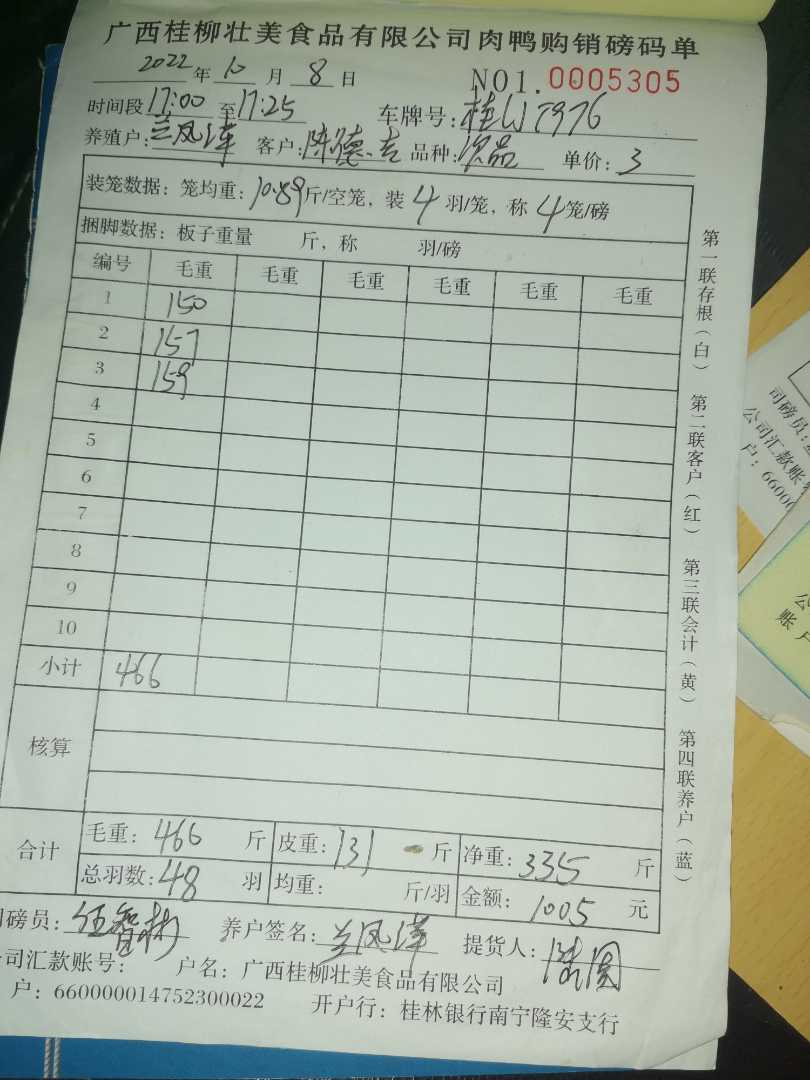 广西桂柳壮美食品有限公司肉鸭购销磅码单
2022年10月8日 NO1.0005305
时间段17:00至17:25 车牌号:桂W7976
养殖户:兰凤泽 客户:陈德吉 品种:次品 单价:3
装笼数据:笼均重:10.89斤/空笼,装4羽/笼,称4笼/磅
捆脚数据:板子重量 斤,称 羽/磅
编号 毛重 毛重 毛重 毛重 毛重 毛重
1 150
2 157
3 159
4
5
6
7
8
9
10
小计 466
核算
合计 毛重:466斤 皮重:131斤 净重:335斤
总羽数:48羽 均重: 斤/羽 金额:1005元
磅员:伍智彬 养户签名:兰凤泽 提货人:
司汇款账号: 户名:广西桂柳壮美食品有限公司
户:660000014752300022 开户行:桂林银行南宁隆安支行
第一联存根(白) 第二联客户(红) 第三联会计(黄) 第四联养户(蓝)
司磅员:
公司汇款账
户:66000
账户